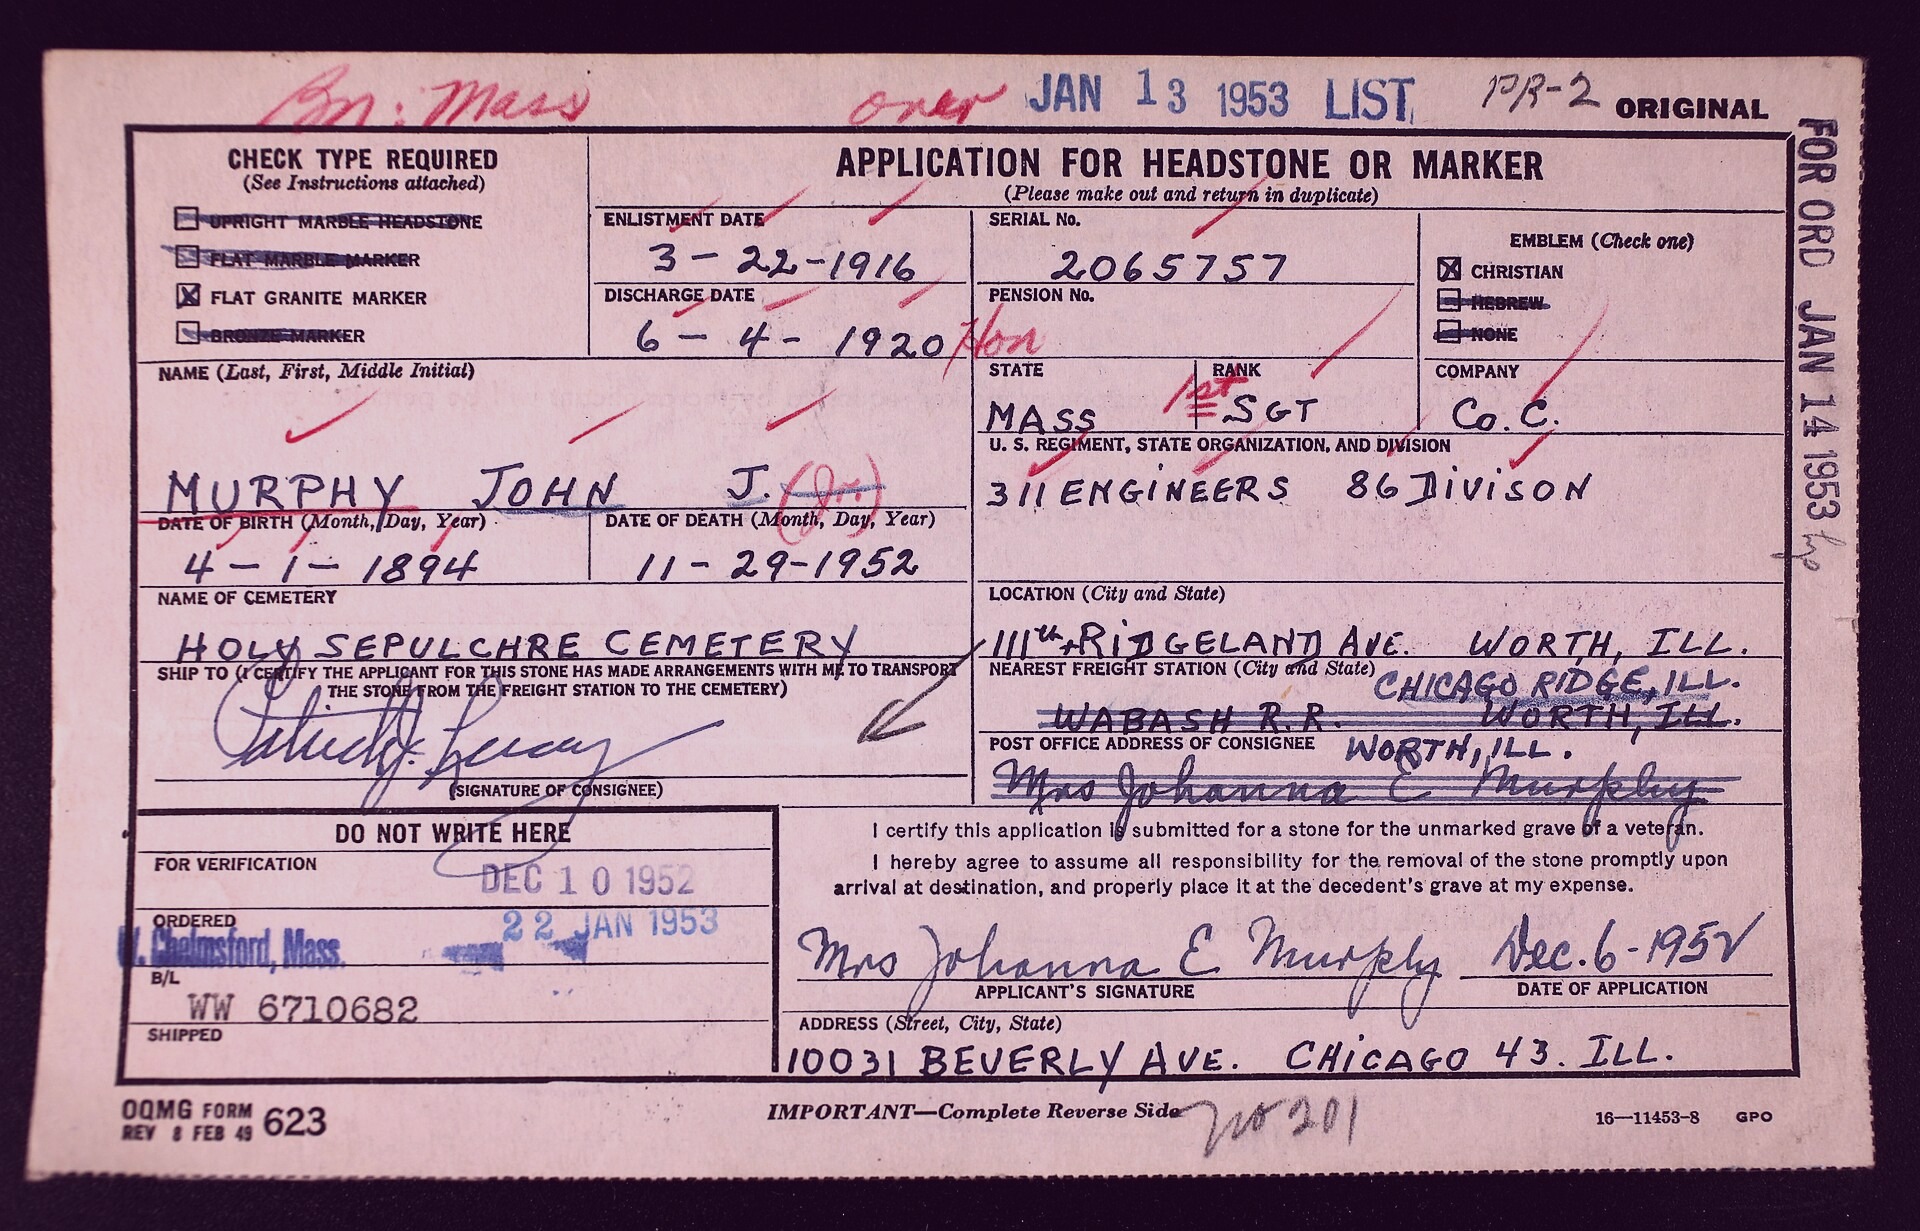 Bn: Mass over JAN 13 1953 LIST PR-2 ORIGINAL
CHECK TYPE REQUIRED
(See Instructions attached)
UPRIGHT MARBLE HEADSTONE
FLAT MARBLE MARKER
FLAT GRANITE MARKER
BRONZE MARKER
APPLICATION FOR HEADSTONE OR MARKER
(Please make out and return in duplicate)
ENLISTMENT DATE
3-22-1916
DISCHARGE DATE
6-4-1920 Hon
SERIAL No.
2065757
PENSION No.
EMBLEM (Check one)
CHRISTIAN
HEBREW
NONE
NAME (Last, First, Middle Initial)
MURPHY JOHN J. (Jr.)
STATE
MASS
RANK
1st SGT
COMPANY
Co. C.
U. S. REGIMENT, STATE ORGANIZATION, AND DIVISION
311 ENGINEERS 86 DIVISON
DATE OF BIRTH (Month, Day, Year)
4-1-1894
DATE OF DEATH (Month, Day, Year)
11-29-1952
NAME OF CEMETERY
HOLY SEPULCHRE CEMETERY
LOCATION (City and State)
111th + RIDGELAND AVE. WORTH, ILL.
SHIP TO (I CERTIFY THE APPLICANT FOR THIS STONE HAS MADE ARRANGEMENTS WITH ME TO TRANSPORT
THE STONE FROM THE FREIGHT STATION TO THE CEMETERY)
(SIGNATURE OF CONSIGNEE)
NEAREST FREIGHT STATION (City and State)
CHICAGO RIDGE, ILL.
WABASH R.R. WORTH, ILL.
POST OFFICE ADDRESS OF CONSIGNEE
WORTH, ILL.
Mrs Johanna E Murphy
DO NOT WRITE HERE
FOR VERIFICATION
DEC 10 1952
ORDERED
22 JAN 1953
W. Chelmsford, Mass.
B/L
WW 6710682
SHIPPED
I certify this application is submitted for a stone for the unmarked grave of a veteran.
I hereby agree to assume all responsibility for the removal of the stone promptly upon
arrival at destination, and properly place it at the decedent's grave at my expense.
Mrs Johanna E Murphy Dec. 6-1952
APPLICANT'S SIGNATURE DATE OF APPLICATION
ADDRESS (Street, City, State)
10031 BEVERLY AVE. CHICAGO 43. ILL.
OQMG FORM 623
REV 8 FEB 49
IMPORTANT—Complete Reverse Side
no 201
16—11453-8 GPO
FOR ORD JAN 14 1953